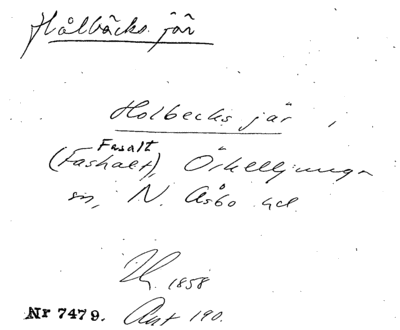 Hålbäcks jär
Holbecks jär,
Fasalt
(Fashalt), Örkelljunga
sn, N. Åsbo hd
1858
Nr 7479. Avt 190.